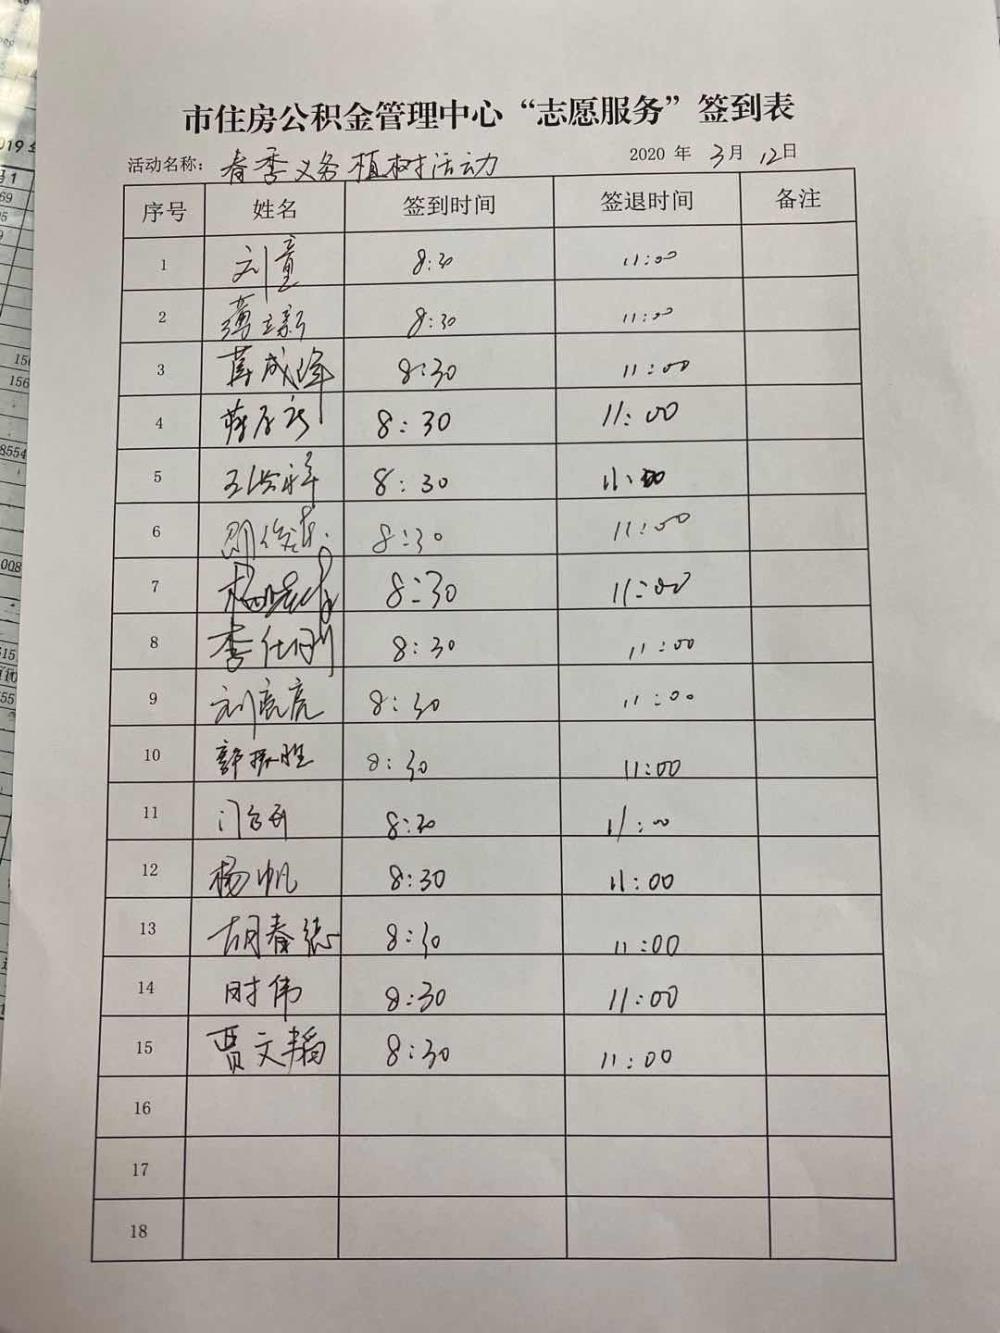 市住房公积金管理中心“志愿服务”签到表
活动名称：春季义务植树活动 2020 年 3月 12日
序号 姓名 签到时间 签退时间 备注
1 刘童 8:30 11:00
2 8:30 11:00
3 8:30 11:00
4 8:30 11:00
5 8:30 11:00
6 8:30 11:00
7 8:30 11:00
8 李仕刚 8:30 11:00
9 刘亮亮 8:30 11:00
10 郭振胜 8:30 11:00
11 8:30 11:00
12 杨帆 8:30 11:00
13 胡春德 8:30 11:00
14 时伟 8:30 11:00
15 贾文韬 8:30 11:00
16
17
18